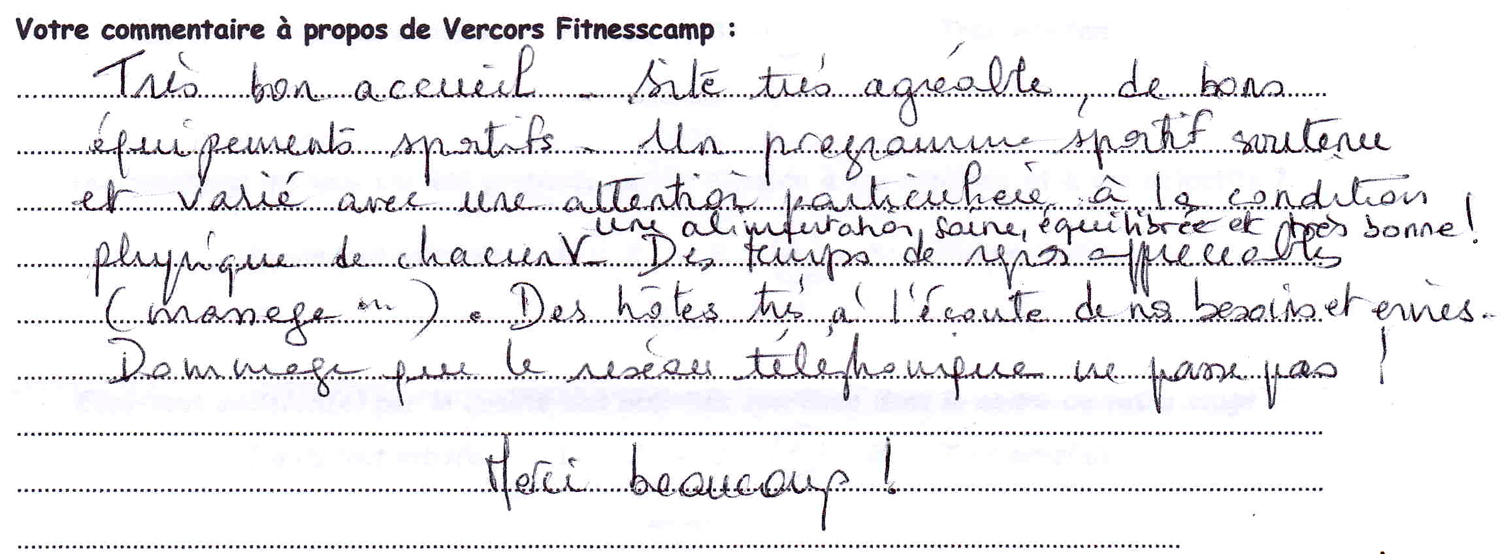 Votre commentaire à propos de Vercors Fitnesscamp :
Très bon accueil. Site très agréable, de bons
équipements sportifs. Un programme sportif soutenu
et varié avec une attention particulière à la condition
une alimentation saine, équilibrée et très bonne !
physique de chacun V. Des temps de repos appréciables
(massage ...). Des hôtes très à l'écoute de nos besoins et envies.
Dommage que le réseau téléphonique ne passe pas !
Merci beaucoup !